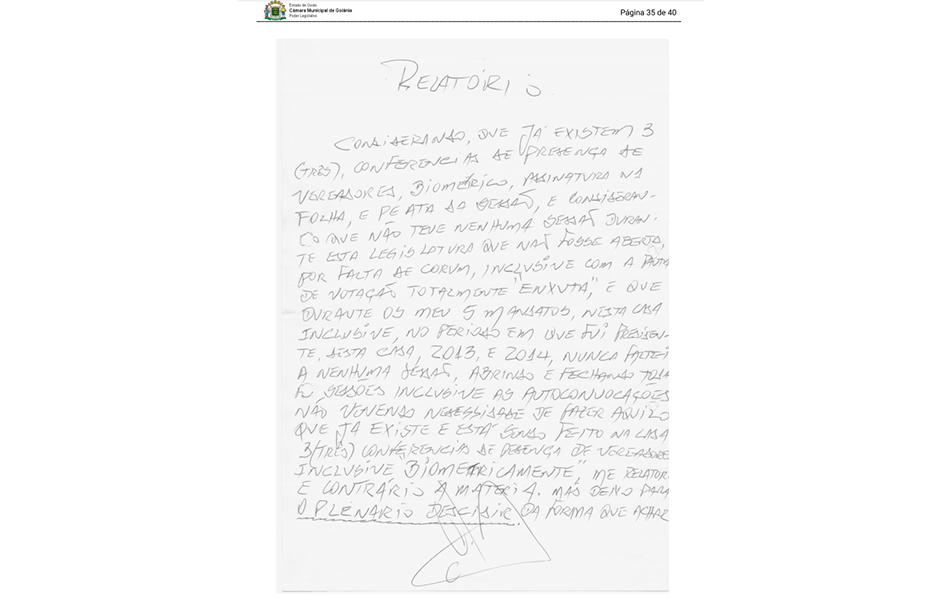 Estado de Goiás
Câmara Municipal de Goiânia
Poder Legislativo
Página 35 de 40
RELATÓRIO
CONSIDERANDO, QUE JÁ EXISTEM 3
(TRÊS), CONFERENCIAS DE PRESENÇA DE
VEREADORES, BIOMÉRICO, ASSINATURA NA
FOLHA, E PE ATA DA SESSÃO, E CONSIDERAN-
CO QUE NÃO TEVE NENHUMA SESSÃO DURAN-
TE ESTA LEGISLATURA QUE NÃO FOSSE ABERTA,
POR FALTA DE CORUM, INCLVSIVE COM A PAUTA
DE VOTAÇÃO TOTALMENTE "ENXVTA", E QUE
DURANTE OS MEU 5 MANDATOS, NESTA CASA
INCLUSIVE, NO PERIODO EM QUE FUI PRESIDEN-
TE, DESTA CASA, 2013, E 2014, NUNCA FALTEI
A NENHUMA SESSÃO, ABRINDO E FECHANDO TODA
SESSÕES INCLVSIVE AS AUTOCONVOCAÇÕES
NÃO VENENDO NESESSIDADE DE FAZER AQUILO
QUE JÁ EXISTE E ESTÁ SENDO FEITO NA CASA
3(TRÊS) CONFERENCIAS DE PESENÇA DE VEREADORE
INCLUSIVE "BIOMETRICAMENTE", ME RELATOR
E CONTRÁRIO A MATERIA. MAS DEIXO PARA
O PLENARIO DESCISIR DA FORMA QUE ACHAR